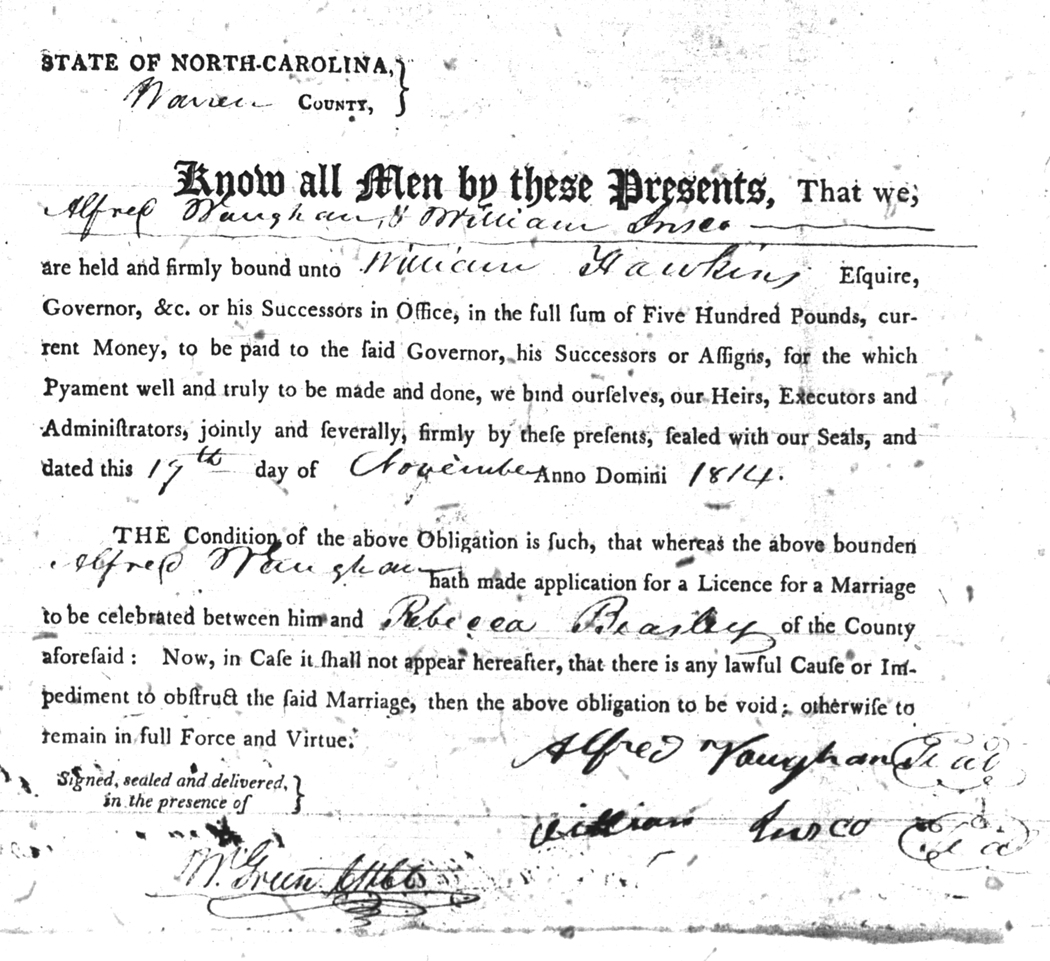 STATE OF NORTH-CAROLINA,}
Warren COUNTY,
Know all Men by these Presents, That we,
Alfred Vaughan, & William Insco
are held and firmly bound unto William Hawkins Eſquire,
Governor, &c. or his Successors in Office, in the full ſum of Five Hundred Pounds, cur-
rent Money, to be paid to the ſaid Governor, his Successors or Aſſigns, for the which
Pyament well and truly to be made and done, we bind ourſelves, our Heirs, Executors and
Adminiſtrators, jointly and ſeverally, firmly by theſe preſents, ſealed with our Seals, and
dated this 17th day of November Anno Domini 1814.
THE Condition of the above Obligation is ſuch, that whereas the above bounden
Alfred Vaughan hath made application for a Licence for a Marriage
to be celebrated between him and Rebecca Beasley of the County
aforeſaid: Now, in Caſe it ſhall not appear hereafter, that there is any lawful Cauſe or Im-
pediment to obſtruct the ſaid Marriage, then the above obligation to be void; otherwiſe to
remain in full Force and Virtue.
Alfred Vaughan Seal
Signed, sealed and delivered,}
in the presence of
William Insco
Wm Green